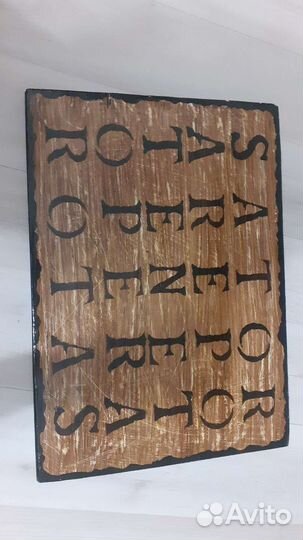 SATOR
AREPO
TENET
OPERA
ROTAS
Avito